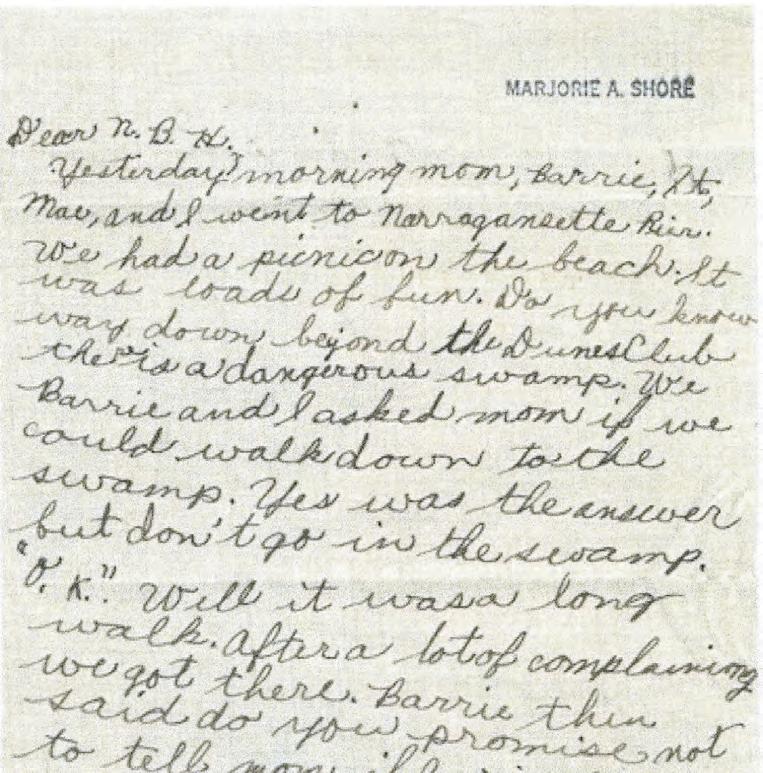 MARJORIE A. SHORE
Dear N. B. H.
Yesterday morning mom, Barrie, It,
Mae, and I went to Narragansette Pier.
We had a picnic on the beach. It
was loads of fun. Do you know
way down beyond the Dunes Club
the is a dangerous swamp. We
Barrie and I asked mom if we
could walk down to the
swamp. Yes was the answer
but don't go in the swamp.
"O. K." Well it was a long
walk. After a lot of complaining
we got there. Barrie then
said do you promise not
to tell mom